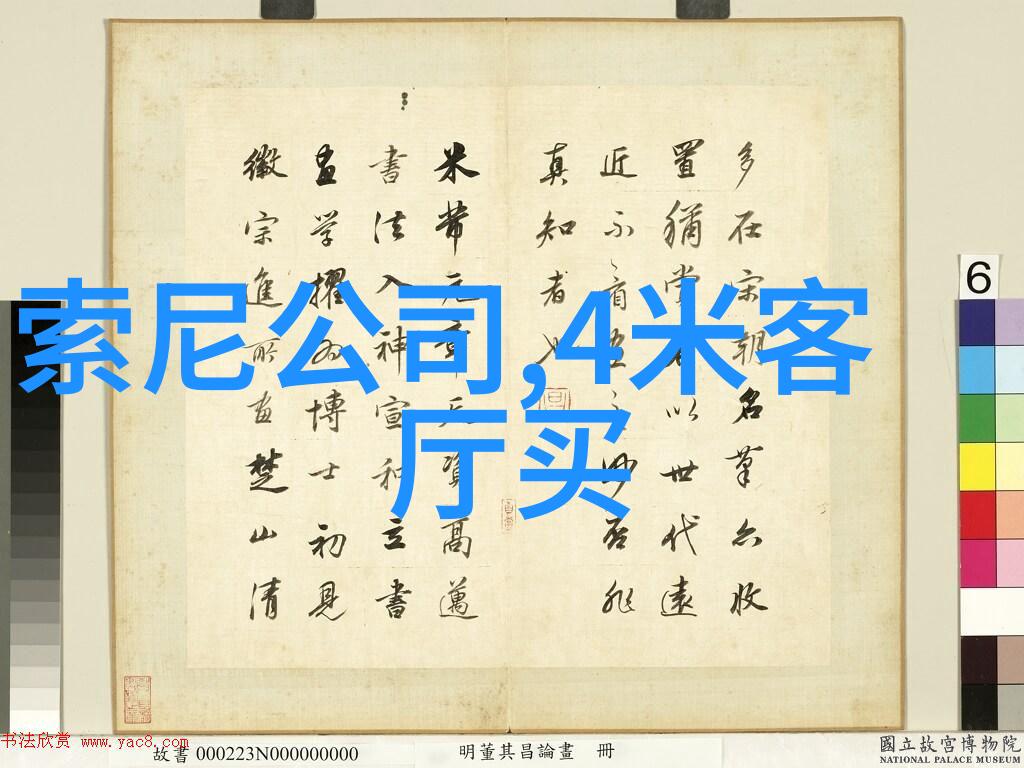 多在宋朝名筆亦收
置猶嘗
以世代遠
近不
真知者
索尼公司,4米客
厅买
米芾元章天資高邁
書法入神宣和立書
畫学擢為博士初見
徽宗進所畫楚山清
6
书法欣赏 www.yac8.com
故書 000223N000000000
明董其昌論畫 冊
國立故宮博物院
NATIONAL PALACE MUSEUM